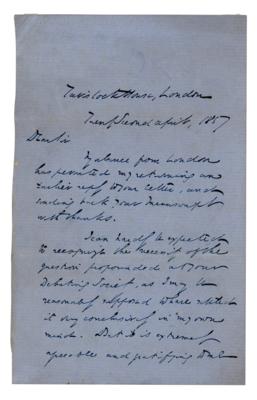 Tavistock House, London
Twenty Second April, 1857
Dear Sir
My absence from London
has prevented my returning an
earlier reply to your letter, and
sending back your manuscript
with thanks.
I can hardly be expected
to recognize the necessity of the
question propounded at your
Debating Society, as I may be
reasonably supposed to have settled
it very conclusively in my own
mind. But it is extremely
agreeable and gratifying to me